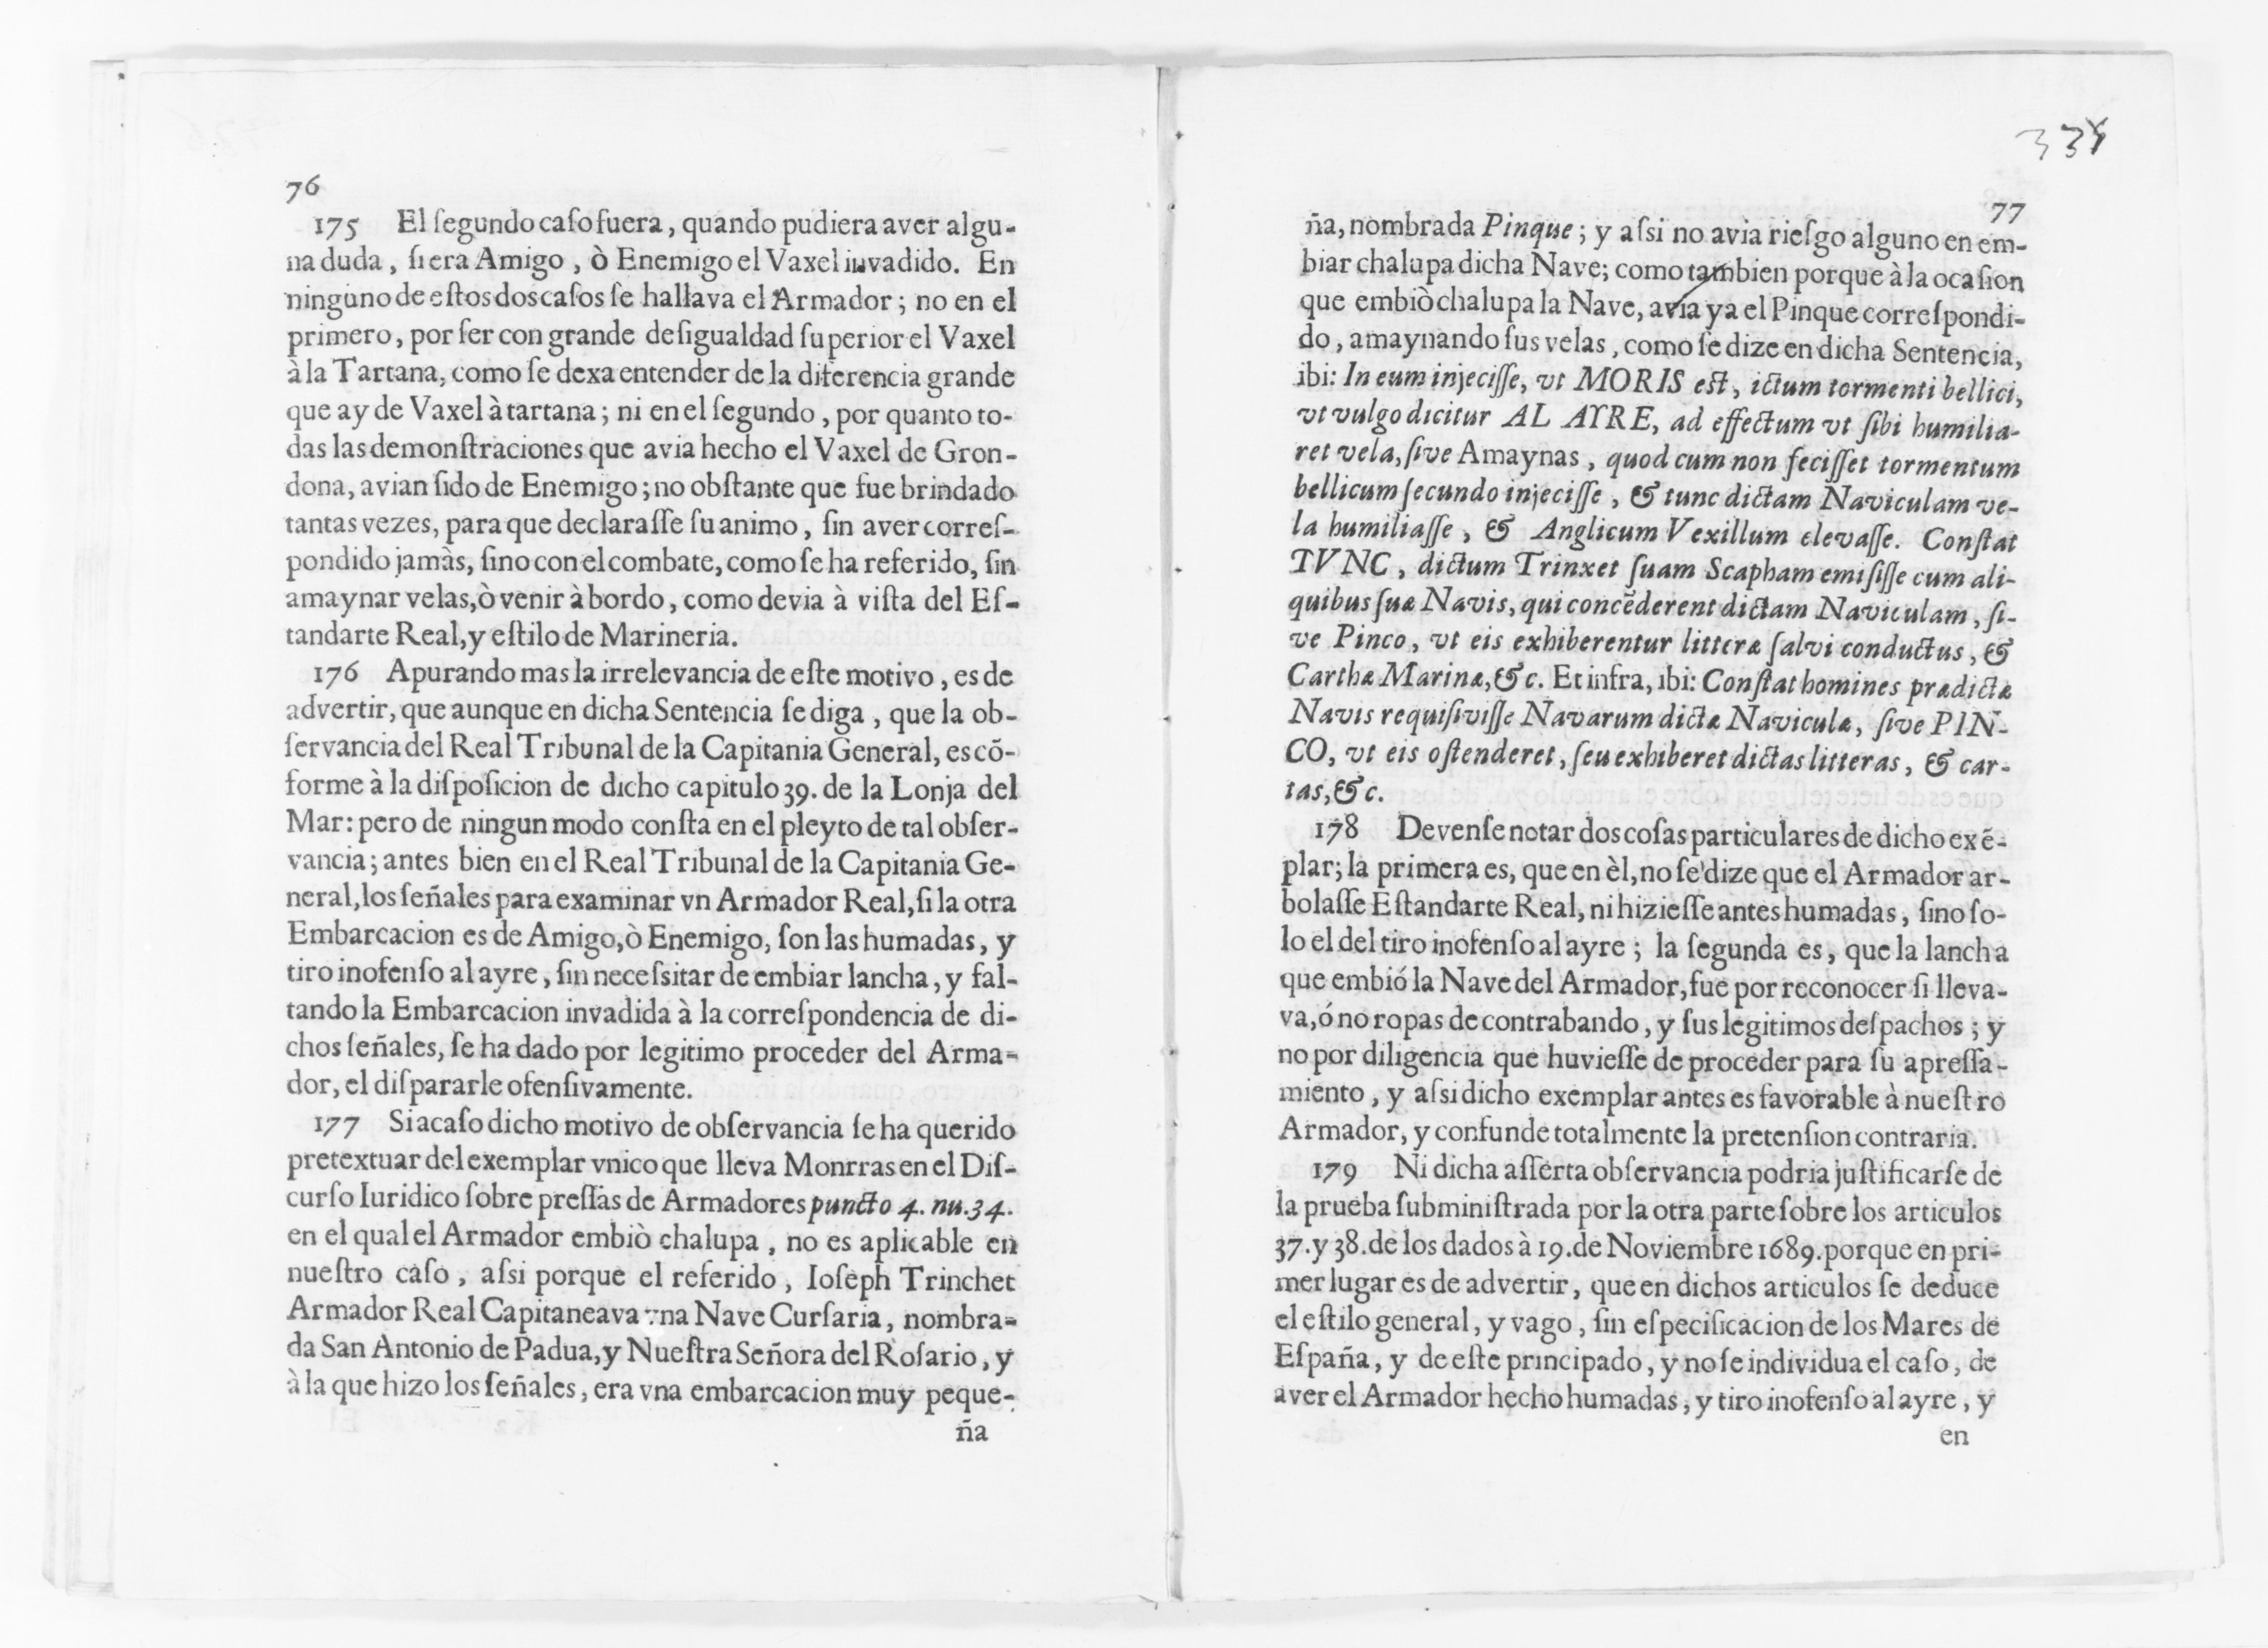 76
175 El ſegundo caſo fuera, quando pudiera aver algu-
na duda, ſi era Amigo, ò Enemigo el Vaxel invadido. En
ninguno de eſtos dos caſos ſe hallava el Armador; no en el
primero, por ſer con grande deſigualdad ſuperior el Vaxel
à la Tartana, como ſe dexa entender de la diferencia grande
que ay de Vaxel à tartana; ni en el ſegundo, por quanto to-
das las demonſtraciones que avia hecho el Vaxel de Gron-
dona, avian ſido de Enemigo; no obſtante que fue brindado
tantas vezes, para que declaraſſe ſu animo, ſin aver correſ-
pondido jamàs, ſino con el combate, como ſe ha referido, ſin
amaynar velas, ò venir à bordo, como devia à viſta del Eſ-
tandarte Real, y eſtilo de Marineria.
176 Apurando mas la irrelevancia de eſte motivo, es de
advertir, que aunque en dicha Sentencia ſe diga, que la ob-
ſervancia del Real Tribunal de la Capitania General, es cō-
forme à la diſpoſicion de dicho capitulo 39. de la Lonja del
Mar: pero de ningun modo conſta en el pleyto de tal obſer-
vancia; antes bien en el Real Tribunal de la Capitania Ge-
neral, los ſeñales para examinar vn Armador Real, ſi la otra
Embarcacion es de Amigo, ò Enemigo, ſon las humadas, y
tiro inofenſo al ayre, ſin neceſsitar de embiar lancha, y fal-
tando la Embarcacion invadida à la correſpondencia de di-
chos ſeñales, ſe ha dado por legitimo proceder del Arma-
dor, el diſpararle ofenſivamente.
177 Si acaſo dicho motivo de obſervancia ſe ha querido
pretextuar del exemplar vnico que lleva Monrras en el Diſ-
curſo Iuridico ſobre preſſas de Armadores puncto 4. nu. 34.
en el qual el Armador embiò chalupa, no es aplicable en
nueſtro caſo, aſsi porque el referido, Ioſeph Trinchet
Armador Real Capitaneava vna Nave Curſaria, nombra-
da San Antonio de Padua, y Nueſtra Señora del Roſario, y
à la que hizo los ſeñales, era vna embarcacion muy peque-
ña
334
77
ña, nombrada Pinque; y aſsi no avìa rieſgo alguno en em-
biar chalupa dicha Nave; como tambien porque à la ocaſion
que embiò chalupa la Nave, avia ya el Pinque correſpondi-
do, amaynando ſus velas, como ſe dize en dicha Sentencia,
ibi: In eum injeciſſe, vt MORIS eſt, ictum tormenti bellici,
vt vulgo dicitur AL AYRE, ad effectum vt ſibi humilia-
ret vela, ſive Amaynas, quod cum non feciſſet tormentum
bellicum ſecundo injeciſſe, & tunc dictam Naviculam ve-
la humiliaſſe, & Anglicum Vexillum elevaſſe. Conſtat
TVNC, dictum Trinxet ſuam Scapham emiſiſſe cum ali-
quibus ſuæ Navis, qui concēderent dictam Naviculam, ſi-
ve Pinco, vt eis exhiberentur litteræ ſalvi conductus, &
Carthæ Marinæ, &c. Et infra, ibi: Conſtat homines prædictæ
Navis requiſiviſſe Navarum dictæ Naviculæ, ſive PIN-
CO, vt eis oſtenderet, ſeu exhiberet dictas litteras, & car-
tas, &c.
178 Devenſe notar dos coſas particulares de dicho exē-
plar; la primera es, que en èl, no ſe dize que el Armador ar-
bolaſſe Eſtandarte Real, ni hizieſſe antes humadas, ſino ſo-
lo el del tiro inofenſo al ayre; la ſegunda es, que la lancha
que embió la Nave del Armador, fue por reconocer ſi lleva-
va, ó no ropas de contrabando, y ſus legitimos deſpachos; y
no por diligencia que huvieſſe de proceder para ſu apreſſa-
miento, y aſsi dicho exemplar antes es favorable à nueſtro
Armador, y confunde totalmente la pretenſion contraria.
179 Ni dicha aſſerta obſervancia podria juſtificarſe de
la prueba ſubminiſtrada por la otra parte ſobre los articulos
37. y 38. de los dados à 19. de Noviembre 1689. porque en pri-
mer lugar es de advertir, que en dichos articulos ſe deduce
el eſtilo general, y vago, ſin eſpecificacion de los Mares de
Eſpaña, y de eſte principado, y no ſe individua el caſo, de
aver el Armador hecho humadas, y tiro inofenſo al ayre, y
en